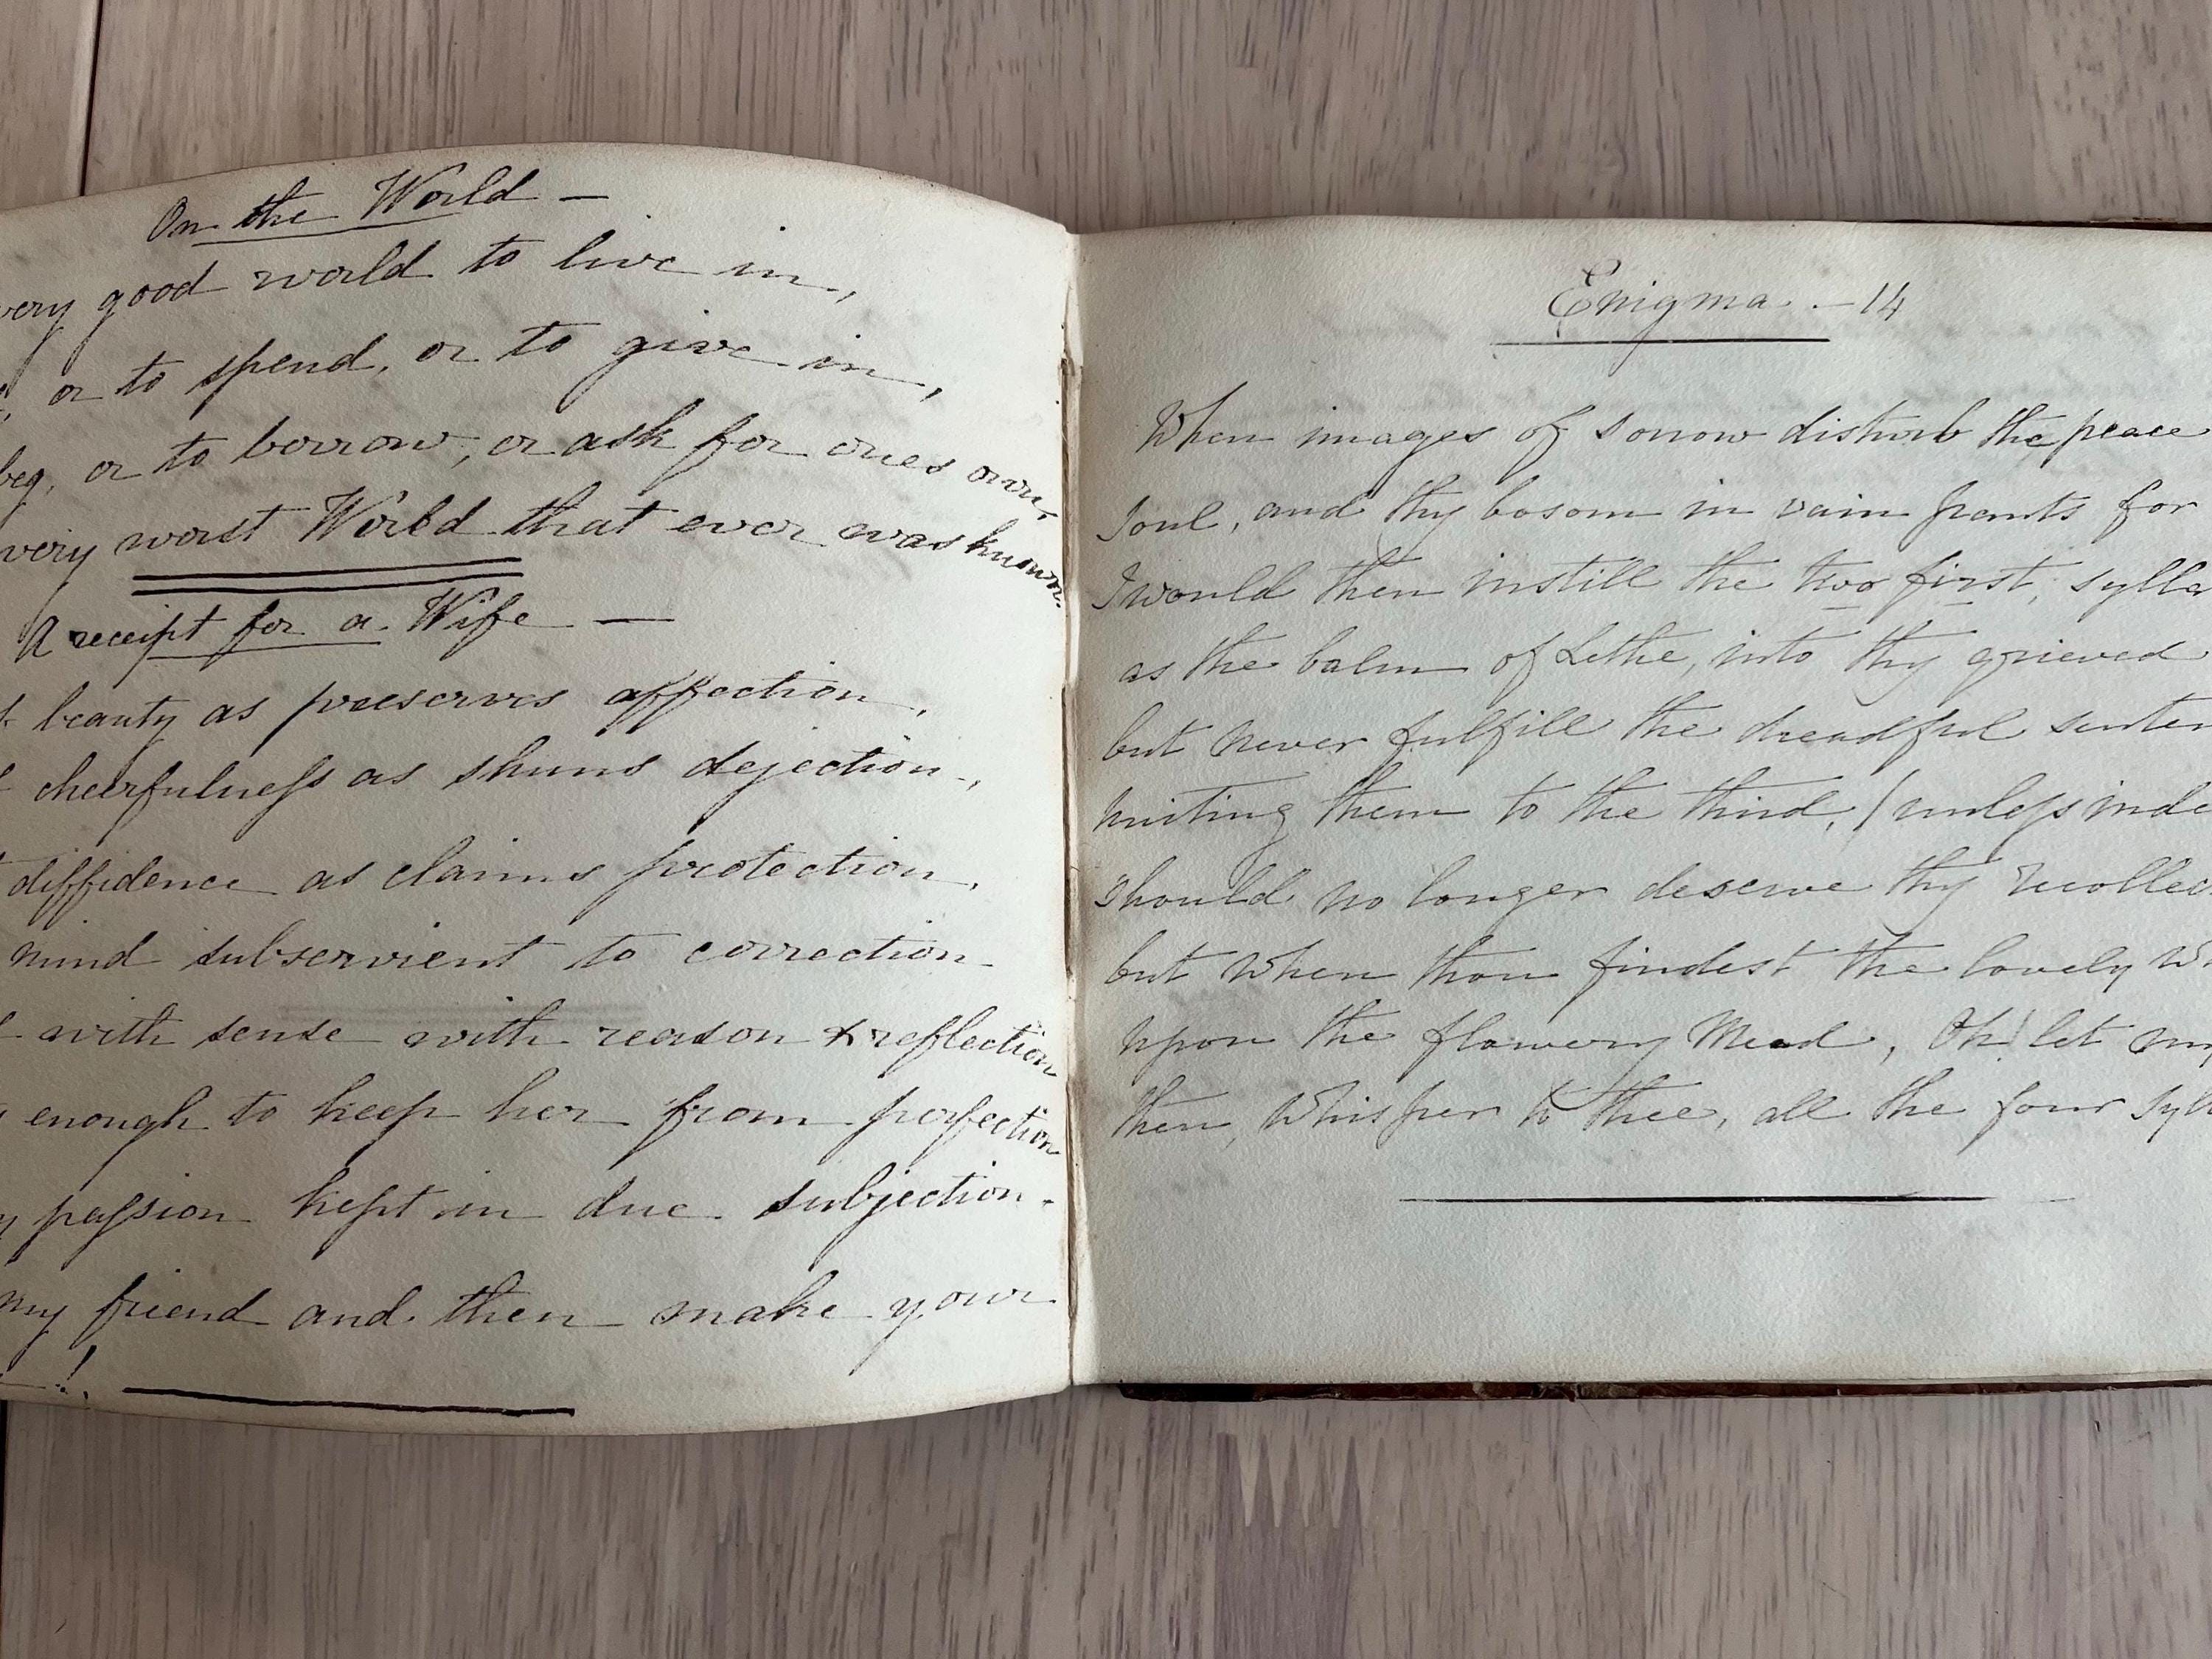 On the World —
very good world to live in,
or to spend, or to give in,
beg, or to borrow, or ask for ones own,
very worst World that ever was known.
A receipt for a Wife —
beauty as preserves affection,
cheerfulness as shuns dejection,
diffidence as claims protection,
mind subservient to correction
with sense with reason & reflection
enough to keep her from perfection
passion kept in due subjection.
my friend and then make your
!
Enigma. — 14
When images of sorrow disturb the peace
Soul, and thy bosom in vain pants for
I would then instill the two first, sylla
as the balm of Lethe, into thy grieved
but never fulfill the dreadful senten
uniting them to the third, (unless inde
should no longer deserve thy recollec
but when thou findest the lovely w
upon the flowery Mead, Oh! let my
then, whisper to thee, all the four syll